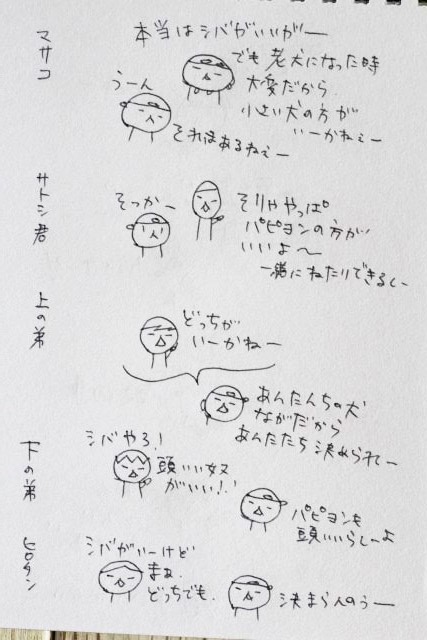 マサコ
本当はシバがいいがー
でも老犬になった時
大変だから
小さい犬の方が
いーかねぇー
うーん
それはあるねぇー
サトシ君
そっかー
そりゃやっぱ
パピヨンの方が
いいよ〜
一緒にねたりできるしー
上の弟
どっちが
いーかねー
あんたんちの犬
ながだから
あんたたち決められてー
下の弟
シバやろ!
頭いい奴
がいい!!
パピヨンも
頭いいらしーよ
ヒロタン
シバがいーけど
まぁ
どっちでも.
決まらんのぅー